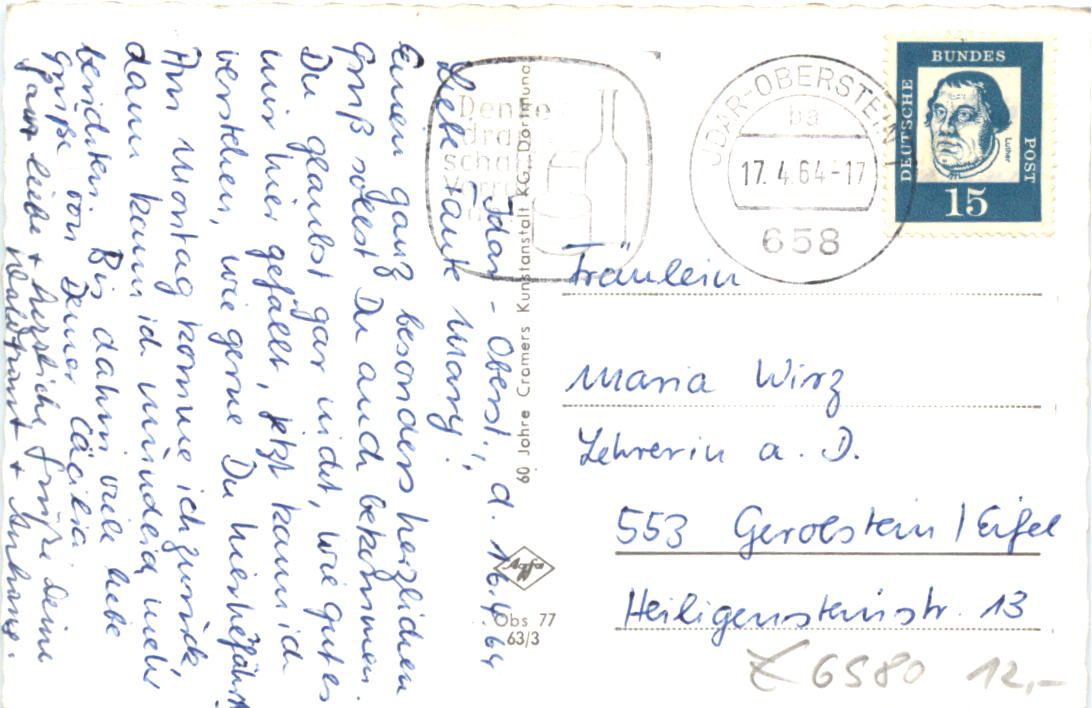 Idar-Oberst. d. 16.4.64
Liebe Tante Mary!!
Einen ganz besonders herzlichen
Gruß sollst Du auch bekommen.
Du glaubst gar nicht, wie gut es
mir hier gefällt, jetzt kann ich
verstehen, wie gerne Du hierhefährst
Am Montag komme ich zurück,
dann kann ich mündlich mehr
berichten. Bis dahin viele liebe
Grüße von Deiner Cäcilia
Ganz liebe + herzliche Grüße deine
Waldtraut + Anhang.
60 Jahre Cramers Kunstanstalt KG, Dortmund
Agfa
Obs 77
63/3
Denke
dra
scha
IDAR-OBERSTEIN 1
ba
17.4.64-17
658
DEUTSCHE
BUNDES
POST
Luther
15
Fräulein
Maria Wirz
Lehrerin a. D.
553 Gerolstein/Eifel
Heiligensteinstr. 13
6580 12,-